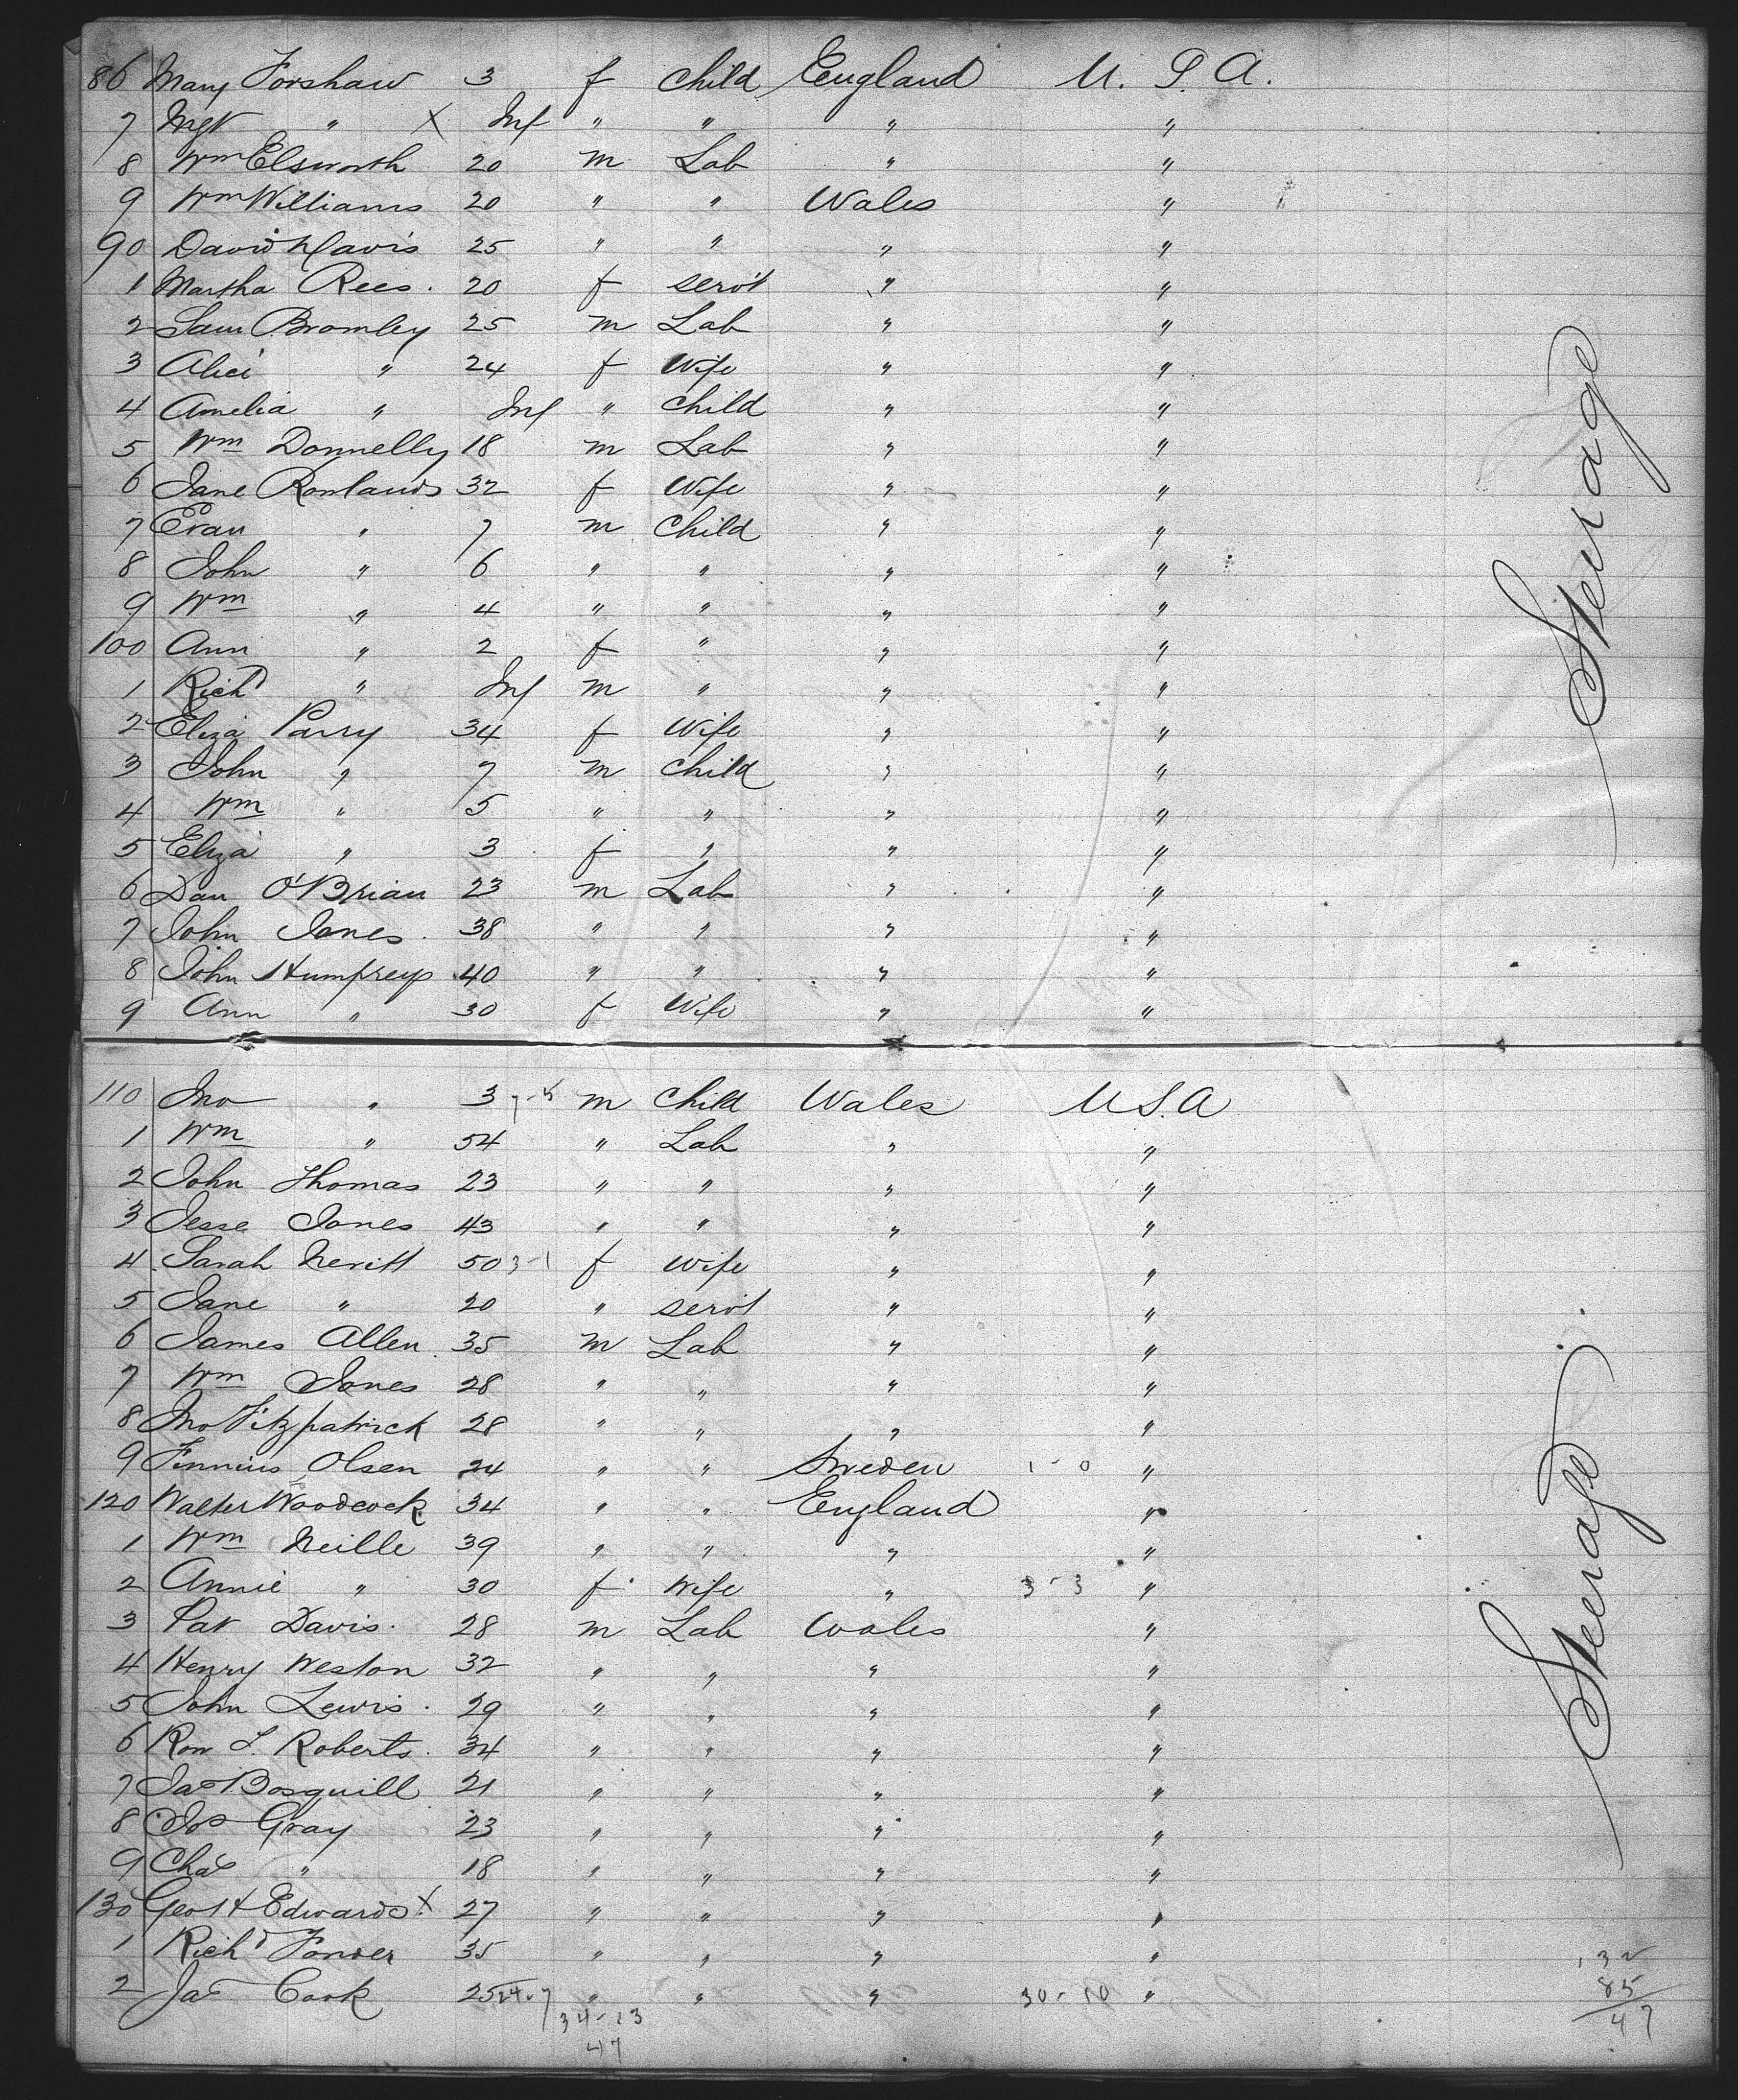 86 Mary Forshaw 3 f Child England U. S. A.
7 Mgt " X Inf " " " "
8 Wm Elsworth 20 m Lab " "
9 Wm Williams 20 " " Wales "
90 David Davis 25 " " " "
1 Martha Rees. 20 f servt " "
2 Sam Bromley 25 m Lab " "
3 Alice " 24 f Wife " "
4 Amelia " Inf " Child " "
5 Wm Donnelly 18 m Lab " "
6 Jane Rowlands 32 f Wife " "
7 Evan " 7 m Child " "
8 John " 6 " " " "
9 Wm " 4 " " " "
100 Ann " 2 f " " "
1 Richd " Inf m " " "
2 Eliza Parry 34 f Wife " "
3 John " 7 m Child " "
4 Wm " 5 " " " "
5 Eliza " 3 f " " "
6 Dan O'Brian 23 m Lab " "
7 John Jones. 38 " " " "
8 John Humpreys 40 " " " "
9 Ann " 30 f Wife " "
Steerage
110 Jno " 3 7-5 m Child Wales U S. A
1 Wm " 54 " Lab " "
2 John Thomas 23 " " " "
3 Jesse Jones 43 " " " "
4 Sarah Nevitt 50 3-1 f Wife " "
5 Jane " 20 " servt " "
6 James Allen 35 m Lab " "
7 Wm Jones 28 " " " "
8 Jno Fitzpatrick 28 " " " "
9 Olsen 24 " " Sweden 1-0 "
120 Walter Woodcock 34 " " England "
1 Wm Neille 39 " " " "
2 Annie " 30 f Wife " 3-3 "
3 Pat Davis. 28 m Lab Wales "
4 Henry Weston 32 " " " "
5 John Lewis. 29 " " " "
6 Row L. Roberts. 34 " " " "
7 Jas Bosquill 21 " " " "
8 Jos Gray 23 " " " "
9 Chas " 18 " " " "
130 Geo H Edwards X 27 " " " "
1 Richd 35 " " " "
2 Jas Cook 25 24-7 " " " 30-10 "
34-13
47
Steerage
132
85
47